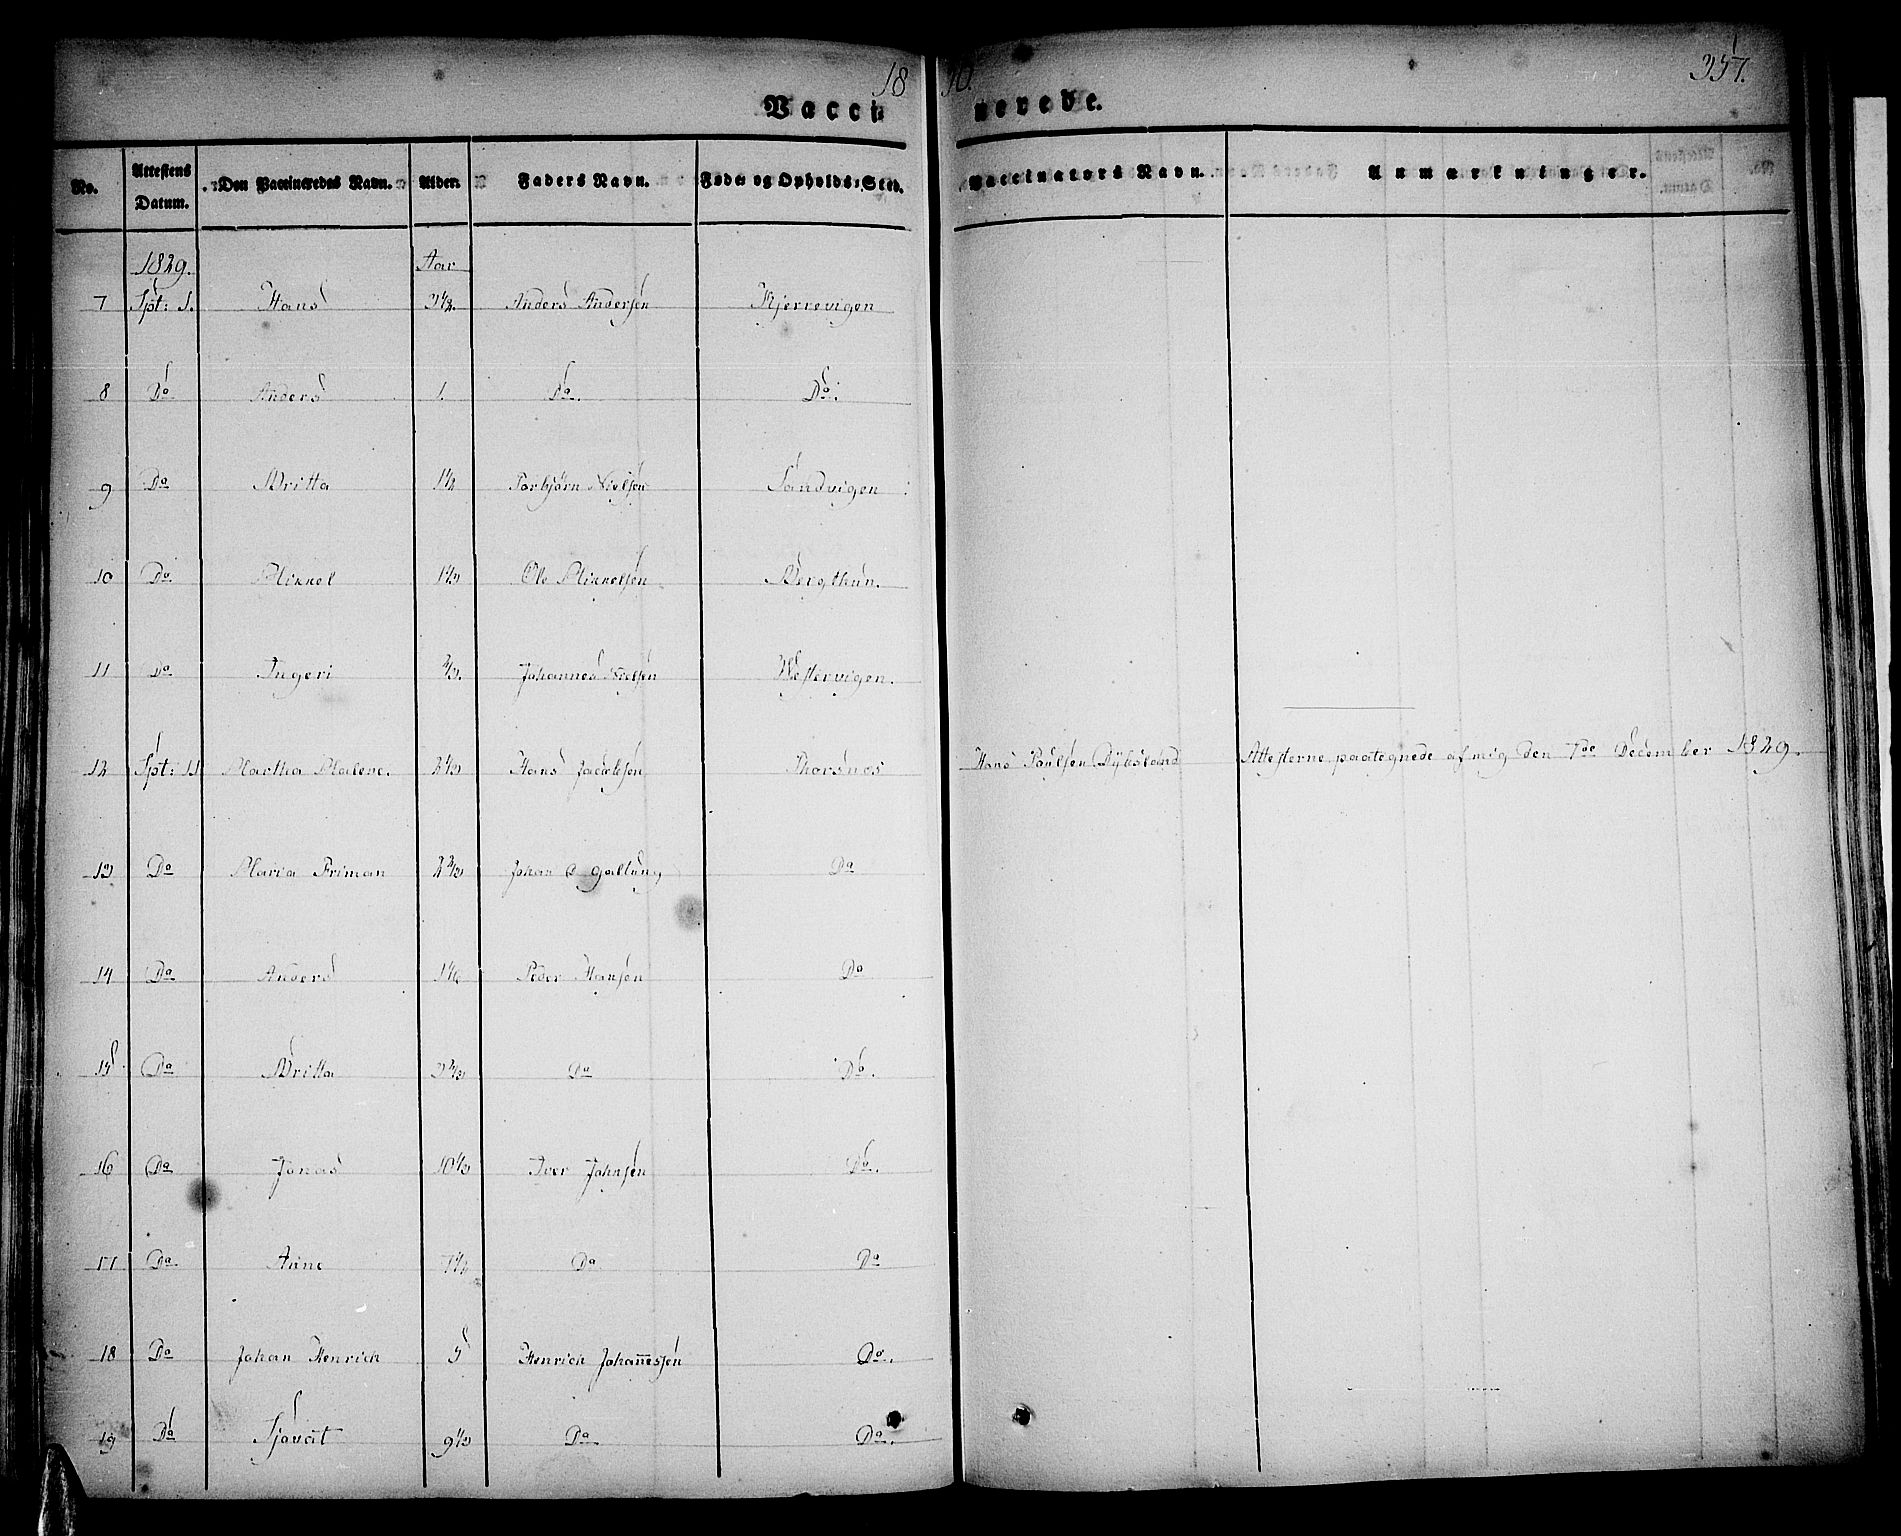 18 357.
Vacci nerede.
No. Attestens Datum. Den Vaccineredes Navn. Alder. Faders Navn. Føde- og Opholds-Sted. Vaccinators Navn. Anmærkninger.
1829. Aar
7 Spt: 5. Hans 3½. Anders Andersen Kjerrevigen
8 Do Anders 1. Do. Do.
9 Do Britta 1½ Torbjørn Nielsen Sandvigen
10 Do Mikkel 1⅓ Ole Mikkelsen Bergthun.
11 Do Ingeri ⅔. Johannes Nielsen Westervigen.
12 Spt: 11 Martha Malene. 2⅓ Hans Jacobsen Thorsnes Hans Poulsen Dyksland Attesterne paategnede af mig den 7de December 1829.
13 Do Maria Friman 2⅔ Johan Galtung Do
14 Do Anders 1⅙ Peder Hansen Do
15 Do Britta 3⅔ Do Do.
16 Do Jonas 10⅓ Iver Johnsen Do.
17 Do Anne 7½ Do Do
18 Do Johan Henrich 5 Henrich Johannesen Do.
19 Do Sjovat 9⅓ Do Do.